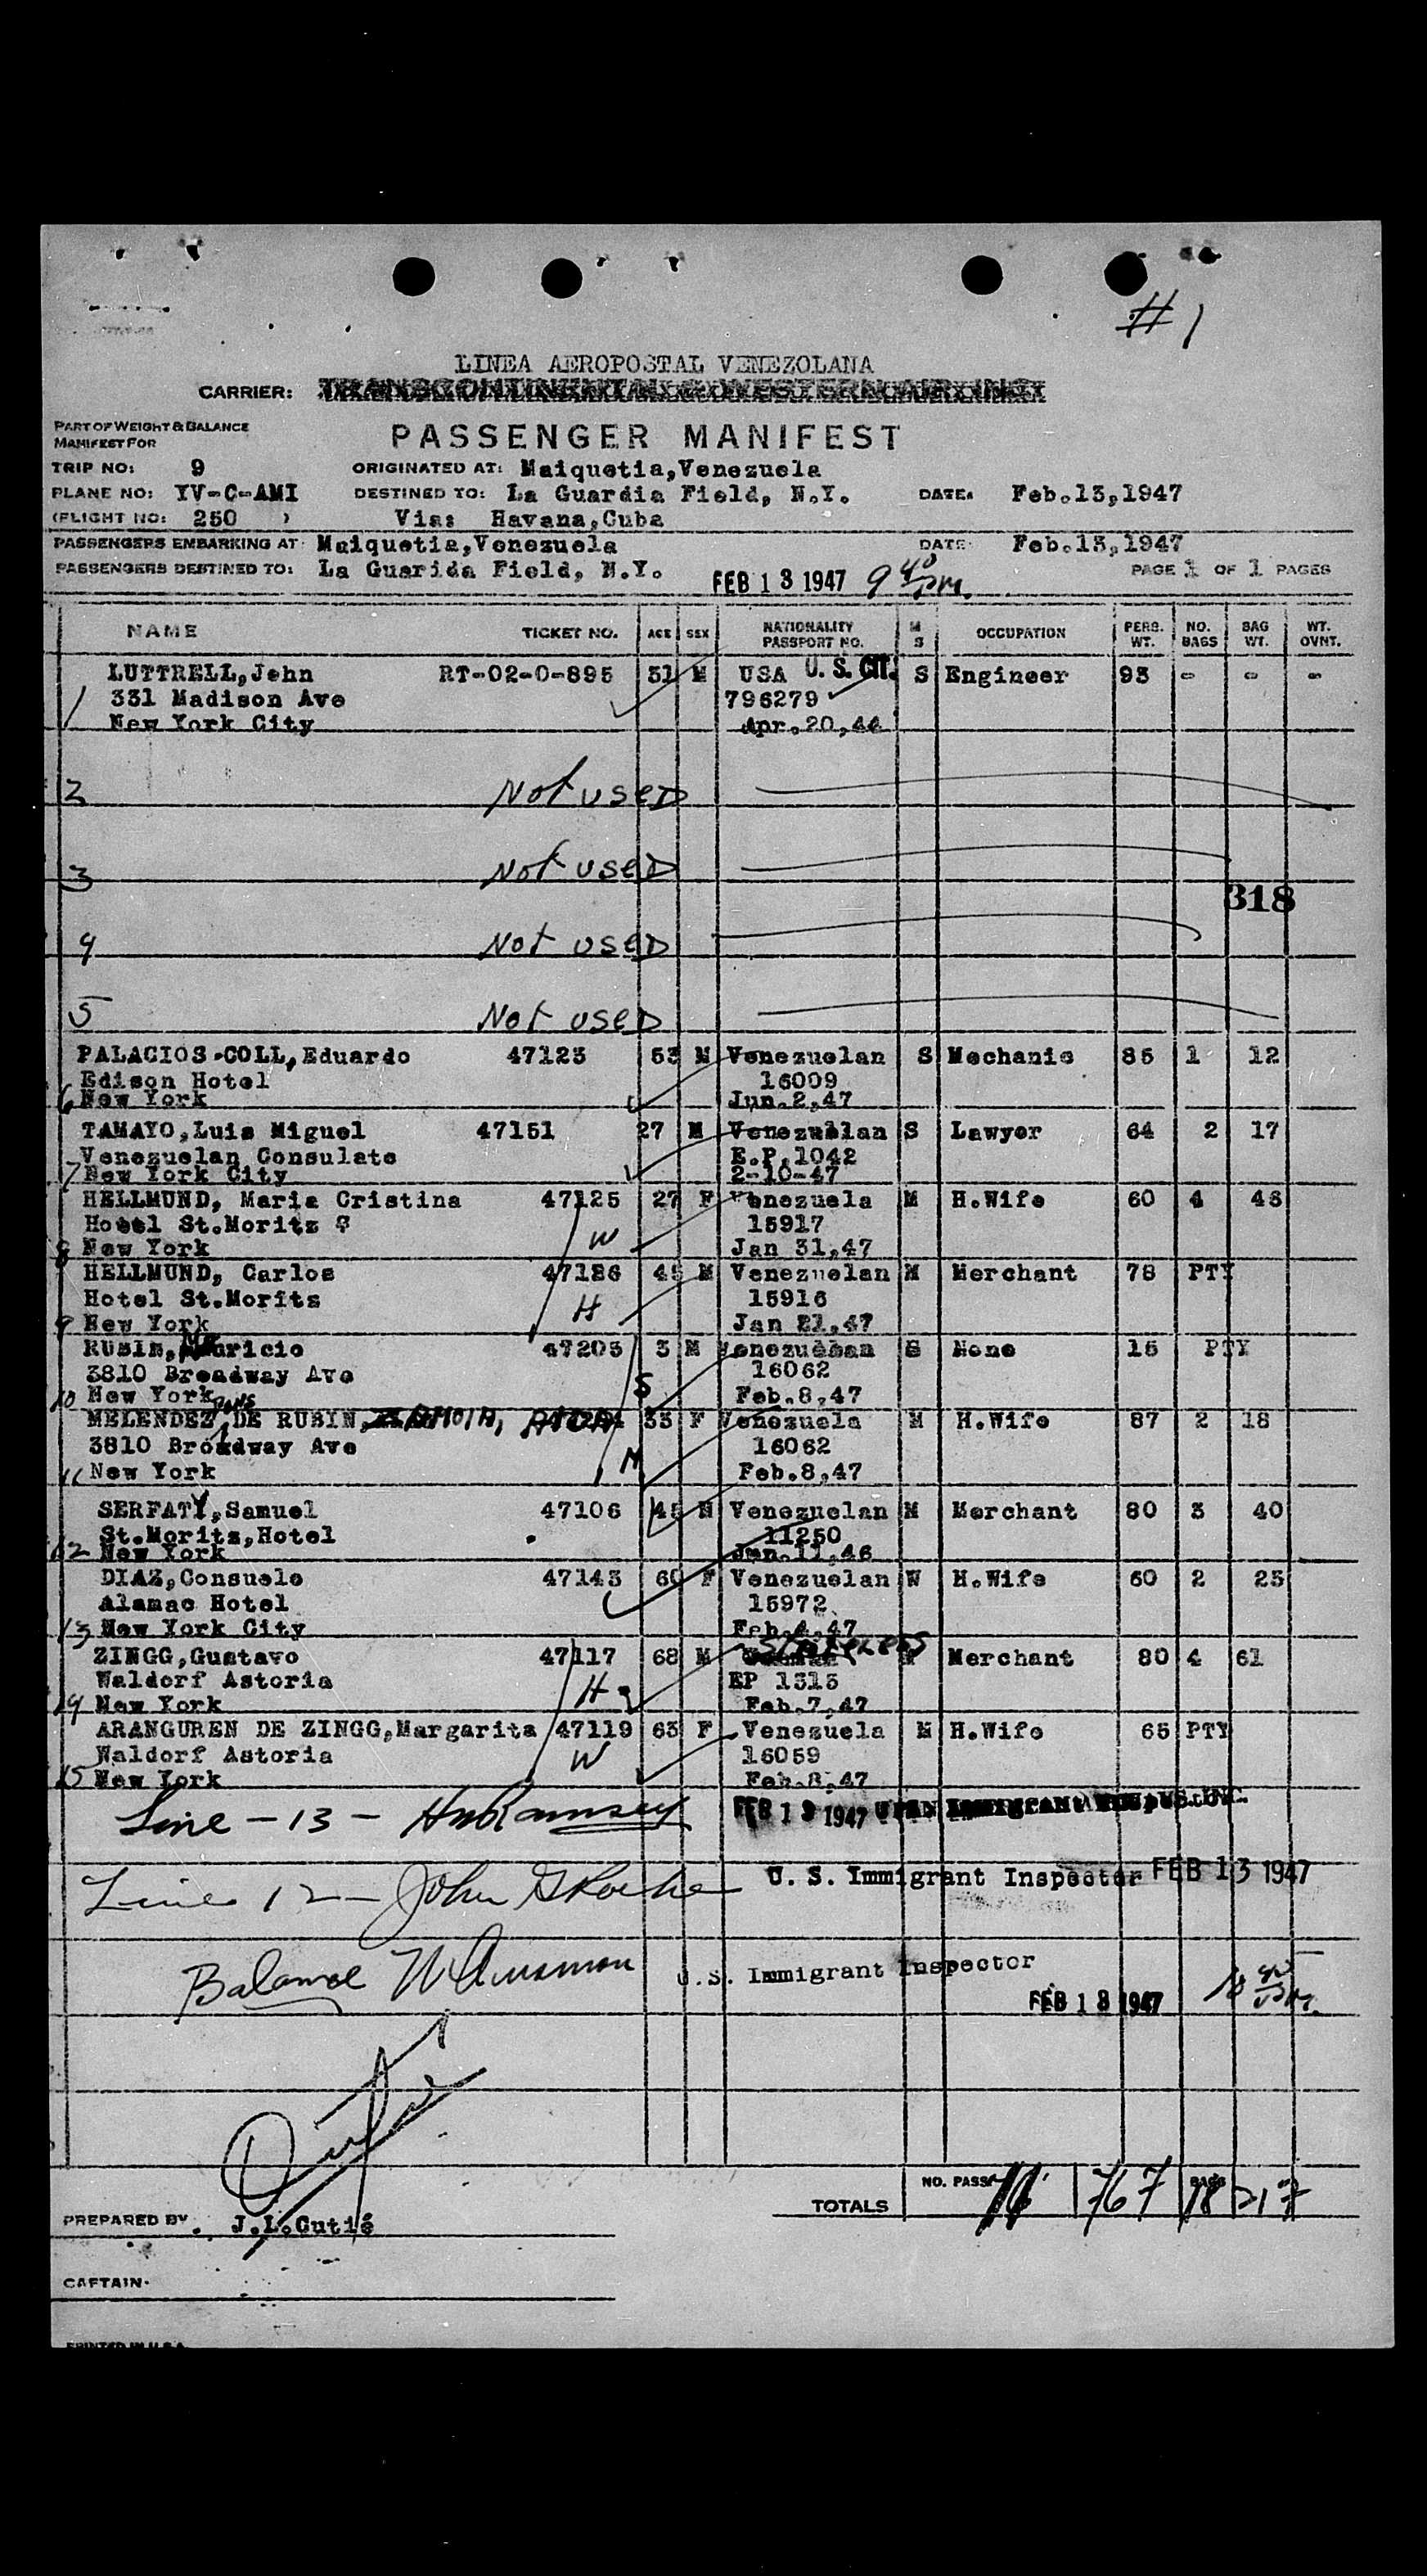 #1
LINEA AEROPOSTAL VENEZOLANA
CARRIER: TRANSCONTINENTAL & WESTERN AIR, INC.
PART OF WEIGHT & BALANCE
MANIFEST FOR
PASSENGER MANIFEST
TRIP NO: 9 ORIGINATED AT: Maiquetia,Venezuela
PLANE NO: YV-C-AMI DESTINED TO: La Guardia Field, N.Y. DATE: Feb.13,1947
(FLIGHT NO: 250 ) Via: Havana,Cuba
PASSENGERS EMBARKING AT: Maiquetia,Venezuela DATE: Feb.13,1947
PASSENGERS DESTINED TO: La Guarida Field, N.Y. FEB 13 1947 9 40 PM. PAGE 1 OF 1 PAGES
NAME TICKET NO. AGE SEX NATIONALITY PASSPORT NO. M S OCCUPATION PERS. WT. NO. BAGS BAG WT. WT. OVNT.
LUTTRELL,John RT-02-0-895 31 M USA U.S. CIT. S Engineer 93 - - -
331 Madison Ave 796279
1 New York City Apr.20,44
2 Not used
3 Not used
318
4 Not used
5 Not used
PALACIOS-COLL,Eduardo 47123 53 M Venezuelan S Mechanic 85 1 12
Edison Hotel 16009
6 New York Jun.2,47
TAMAYO,Luis Miguel 47151 27 M Venezuelan S Lawyer 64 2 17
Venezuelan Consulate E.P.1042
7 New York City 2-10-47
HELLMUND, Maria Cristina 47125 27 F Venezuela M H.Wife 60 4 48
Hotel St.Moritz 15917
8 New York W Jan 31,47
HELLMUND, Carlos 47126 45 M Venezuelan M Merchant 78 PTY
Hotel St.Morits H 15916
9 New York Jan 21,47
RUBIN, Mauricio 47203 3 M Venezuelan S None 15 PTY
3810 Broadway Ave 16062
10 New York S Feb.8,47
MELENDEZ DE RUBIN, AIDA 33 F Venezuela M H.Wife 87 2 18
3810 Broadway Ave 16062
11 New York M Feb.8,47
SERFATY,Samuel 47106 45 M Venezuelan M Merchant 80 3 40
St.Moritz,Hotel 11250
12 New York Jun.11,46
DIAZ,Consuelo 47143 60 F Venezuelan W H.Wife 60 2 25
Alamac Hotel 15972
13 New York City Feb.4,47
ZINGG,Gustavo 47117 68 M Stateless M Merchant 80 4 61
Waldorf Astoria H EP 1315
14 New York Feb.7,47
ARANGUREN DE ZINGG,Margarita 47119 63 F Venezuela M H.Wife 65 PTY
Waldorf Astoria W 16059
15 New York Feb.8,47
Line - 13 - HMRamsey FEB 13 1947
Line 12 - John G Roche U. S. Immigrant Inspector FEB 13 1947
Balance U.S. Immigrant Inspector
FEB 13 1947 10 40 PM.
TOTALS NO. PASS. 11 767 BAGS 18 217
PREPARED BY. J.L.Cutié
CAPTAIN.
PRINTED IN U.S.A.